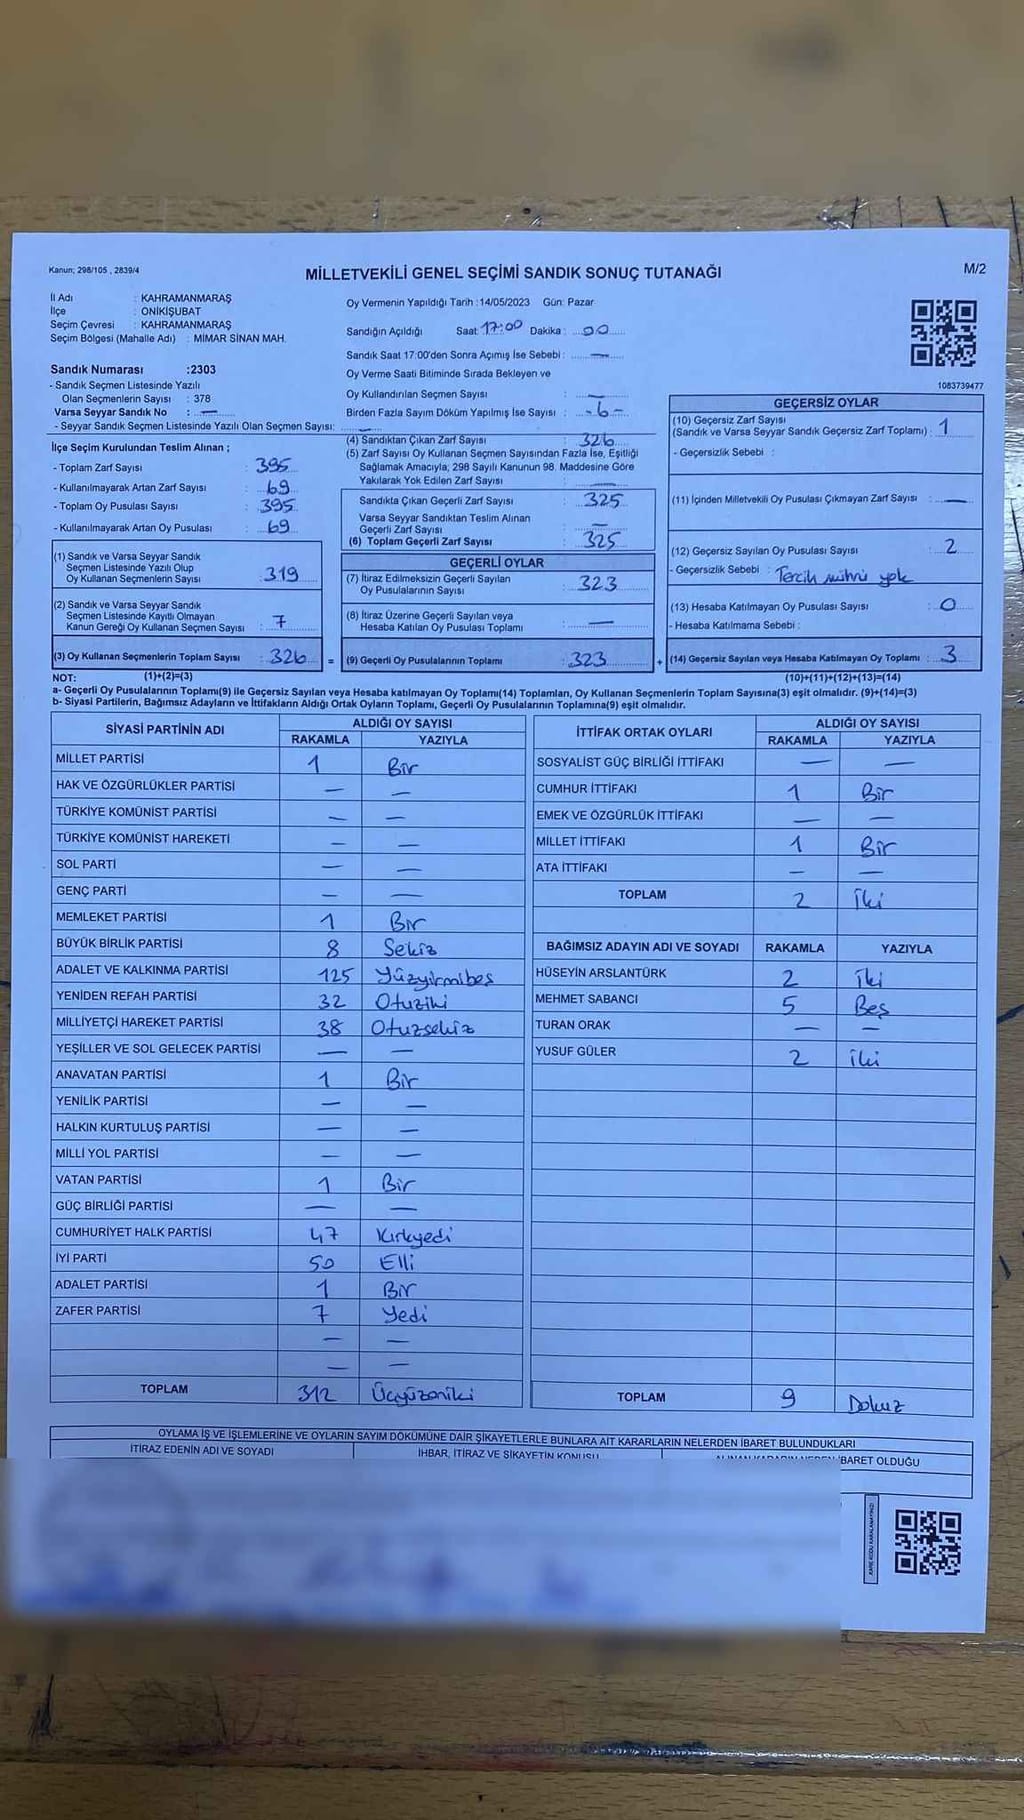 Kanun; 298/105 , 2839/4
MİLLETVEKİLİ GENEL SEÇİMİ SANDIK SONUÇ TUTANAĞI
M/2
İl Adı : KAHRAMANMARAŞ
İlçe : ONİKİŞUBAT
Seçim Çevresi : KAHRAMANMARAŞ
Seçim Bölgesi (Mahalle Adı) : MİMAR SİNAN MAH.
Sandık Numarası :2303
- Sandık Seçmen Listesinde Yazılı
Olan Seçmenlerin Sayısı : 378
Varsa Seyyar Sandık No : —
- Seyyar Sandık Seçmen Listesinde Yazılı Olan Seçmen Sayısı: —
İlçe Seçim Kurulundan Teslim Alınan ;
- Toplam Zarf Sayısı : 395
- Kullanılmayarak Artan Zarf Sayısı : 69
- Toplam Oy Pusulası Sayısı : 395
- Kullanılmayarak Artan Oy Pusulası : 69
(1) Sandık ve Varsa Seyyar Sandık
Seçmen Listesinde Yazılı Olup
Oy Kullanan Seçmenlerin Sayısı : 319
(2) Sandık ve Varsa Seyyar Sandık
Seçmen Listesinde Kayıtlı Olmayan
Kanun Gereği Oy Kullanan Seçmen Sayısı : 7
(3) Oy Kullanan Seçmenlerin Toplam Sayısı : 326
Oy Vermenin Yapıldığı Tarih :14/05/2023 Gün: Pazar
Sandığın Açıldığı Saat: 17:00 Dakika : 00
Sandık Saat 17:00'den Sonra Açımış İse Sebebi : —
Oy Verme Saati Bitiminde Sırada Bekleyen ve
Oy Kullandırılan Seçmen Sayısı : —
Birden Fazla Sayım Döküm Yapılmış İse Sayısı : -6-
(4) Sandıktan Çıkan Zarf Sayısı : 326
(5) Zarf Sayısı Oy Kullanan Seçmen Sayısından Fazla İse, Eşitliği
Sağlamak Amacıyla, 298 Sayılı Kanunun 98. Maddesine Göre
Yakılarak Yok Edilen Zarf Sayısı : —
Sandıkta Çıkan Geçerli Zarf Sayısı : 325
Varsa Seyyar Sandıktan Teslim Alınan
Geçerli Zarf Sayısı : —
(6) Toplam Geçerli Zarf Sayısı : 325
GEÇERLİ OYLAR
(7) İtiraz Edilmeksizin Geçerli Sayılan
Oy Pusulalarının Sayısı : 323
(8) İtiraz Üzerine Geçerli Sayılan veya
Hesaba Katılan Oy Pusulası Toplamı : —
= (9) Geçerli Oy Pusulalarının Toplamı : 323
1083739477
GEÇERSİZ OYLAR
(10) Geçersiz Zarf Sayısı
(Sandık ve Varsa Seyyar Sandık Geçersiz Zarf Toplamı) : 1
- Geçersizlik Sebebi :
(11) İçinden Milletvekili Oy Pusulası Çıkmayan Zarf Sayısı : —
(12) Geçersiz Sayılan Oy Pusulası Sayısı : 2
- Geçersizlik Sebebi : Tercih mührü yok
(13) Hesaba Katılmayan Oy Pusulası Sayısı : 0
- Hesaba Katılmama Sebebi :
+ (14) Geçersiz Sayılan veya Hesaba Katılmayan Oy Toplamı : 3
NOT: (1)+(2)=(3)
(10)+(11)+(12)+(13)=(14)
a- Geçerli Oy Pusulalarının Toplamı(9) ile Geçersiz Sayılan veya Hesaba katılmayan Oy Toplamı(14) Toplamları, Oy Kullanan Seçmenlerin Toplam Sayısına(3) eşit olmalıdır. (9)+(14)=(3)
b- Siyasi Partilerin, Bağımsız Adayların ve İttifakların Aldığı Ortak Oyların Toplamı, Geçerli Oy Pusulalarının Toplamına(9) eşit olmalıdır.
SİYASİ PARTİNİN ADI ALDIĞI OY SAYISI
RAKAMLA YAZIYLA
MİLLET PARTİSİ 1 Bir
HAK VE ÖZGÜRLÜKLER PARTİSİ — —
TÜRKİYE KOMÜNİST PARTİSİ — —
TÜRKİYE KOMÜNİST HAREKETİ — —
SOL PARTİ — —
GENÇ PARTİ — —
MEMLEKET PARTİSİ 1 Bir
BÜYÜK BİRLİK PARTİSİ 8 Sekiz
ADALET VE KALKINMA PARTİSİ 125 Yüzyirmibeş
YENİDEN REFAH PARTİSİ 32 Otuziki
MİLLİYETÇİ HAREKET PARTİSİ 38 Otuzsekiz
YEŞİLLER VE SOL GELECEK PARTİSİ — —
ANAVATAN PARTİSİ 1 Bir
YENİLİK PARTİSİ — —
HALKIN KURTULUŞ PARTİSİ — —
MİLLİ YOL PARTİSİ — —
VATAN PARTİSİ 1 Bir
GÜÇ BİRLİĞİ PARTİSİ — —
CUMHURİYET HALK PARTİSİ 47 Kırkyedi
İYİ PARTİ 50 Elli
ADALET PARTİSİ 1 Bir
ZAFER PARTİSİ 7 Yedi
— —
— —
TOPLAM 312 Üçyüzoniki
İTTİFAK ORTAK OYLARI ALDIĞI OY SAYISI
RAKAMLA YAZIYLA
SOSYALİST GÜÇ BİRLİĞİ İTTİFAKI — —
CUMHUR İTTİFAKI 1 Bir
EMEK VE ÖZGÜRLÜK İTTİFAKI — —
MİLLET İTTİFAKI 1 Bir
ATA İTTİFAKI — —
TOPLAM 2 İki
BAĞIMSIZ ADAYIN ADI VE SOYADI RAKAMLA YAZIYLA
HÜSEYİN ARSLANTÜRK 2 İki
MEHMET SABANCI 5 Beş
TURAN ORAK — —
YUSUF GÜLER 2 İki
TOPLAM 9 Dokuz
OYLAMA İŞ VE İŞLEMLERİNE VE OYLARIN SAYIM DÖKÜMÜNE DAİR ŞİKAYETLERLE BUNLARA AİT KARARLARIN NELERDEN İBARET BULUNDUKLARI
İTİRAZ EDENİN ADI VE SOYADI İHBAR, İTİRAZ VE ŞİKAYETİN KONUSU ALINAN KARARIN NEDEN İBARET OLDUĞU
KARE KODU KARALAMAYINIZ!